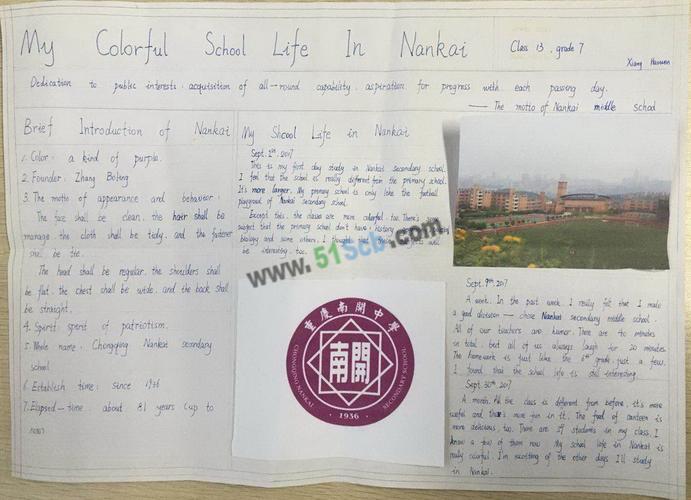 My Colorful School Life In Nankai
Class 13, grade 7
Xiang
Dedication to public interests, acquisition of all-round capability, aspiration for progress with each passing day.
— The motto of Nankai middle school
Brief Introduction of Nankai
1. Color: a kind of purple.
2. Founder: Zhang Boling
3. The motto of appearance and behaviour:
The face shall be clean, the hair shall be
manage the cloth shall be tedy, and the fastener
shall be tie.
The head shall be regular, the shoulders shall
be flat, the chest shall be wide, and the back shall
be straight.
4. Spirit: spirit of patriotism.
5. Whole name: Chongqing Nankai secondary
school
6. Establish time: since 1936
7. Elapsed-time: about 81 years (up to
My Shcool Life in Nankai
Sept. 1st, 2017
This is my first day study in Nankai secondary school.
I feel that the school is really different from the primary school.
It's more larger. My primary school is only like the football
playground of Nankai secondary school.
Except this, the classes are more colorful, too. There's some
subject that the primary school don't have: history,
biology and some others. I thought that these will
be interesting, too.
www.51Scb.com
重慶南開中學
CHONGQING NANKAI SECONDARY SCHOOL
南開
· 1936 ·
Sept. 9th, 2017
A week. In the past week, I really felt that I made
a good division — chose Nankai secondary middle school.
All of our teachers are humor. There are 40 minutes
in total, but all of us always laugh for 20 minutes.
The homework is just like the 6th grade, just a few.
I found that the school life is still interesting.
Sept. 30th, 2017
A month. All the class is different from before, it's more
useful and there's more fun in it. The food of canteen is
more delicious, too. There are students in my class. I
know a few of them now. My school life in Nankai is
really colorful. I'm exciting of the other days I'll study
in Nankai.